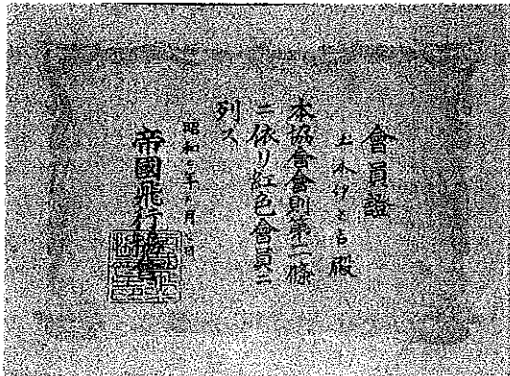 會員證
殿
本協會會則第二條
ニ依リ紅色會員ニ
列ス
昭和 年 月 日
帝國飛行協會